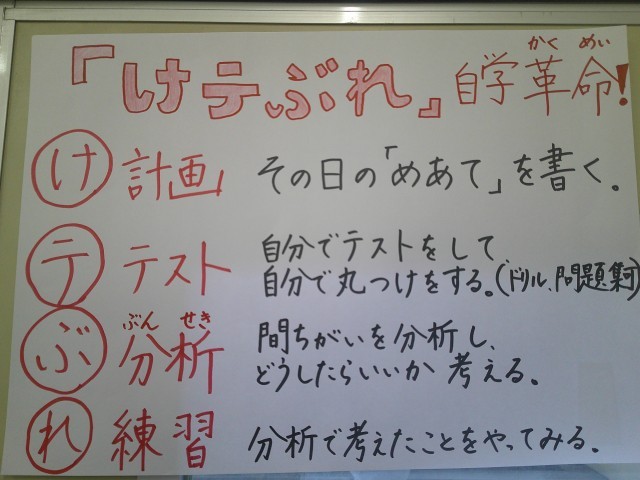 「けテぶれ」自学革命!
かく めい
け 計画 その日の「めあて」を書く。
テ テスト 自分でテストをして
自分で丸つけをする。(ドリル、問題集可)
ぶんせき
ぶ 分析 間ちがいを分析し、
どうしたらいいか考える。
れ 練習 分析で考えたことをやってみる。